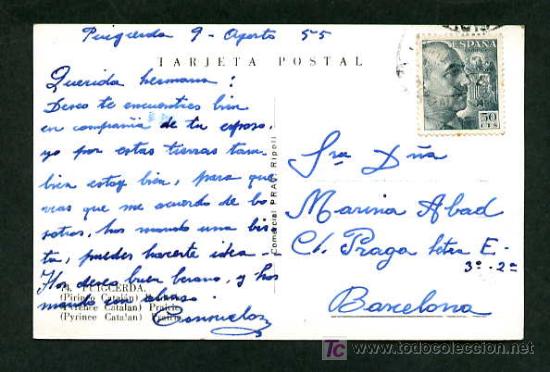 Puigcerda 9 - Agosto 55
TARJETA POSTAL
Querida hermana:
Deseo te encuentres bien
en compañia de tu esposo,
yo por estas tierras tam-
bien estoy bien, para que
veas que me acuerdo de bo-
sotros, hos mando una bis-
ta, puedes hacerte idea -
Hos deseo buen berano, y hos
mando un abrazo
Consuelo
74. PUIGCERDA.
(Pirineo Catalán)
(Pyrénée Catalan) Prairie
(Pyrinee Catalan)
Comercial PRAT. Ripoll
ESPAÑA
50
CTS
Sra Dña
Marina Abad
C/. Praga letra E-
3º-2ª
Barcelona
TC todocoleccion
www.todocoleccion.net